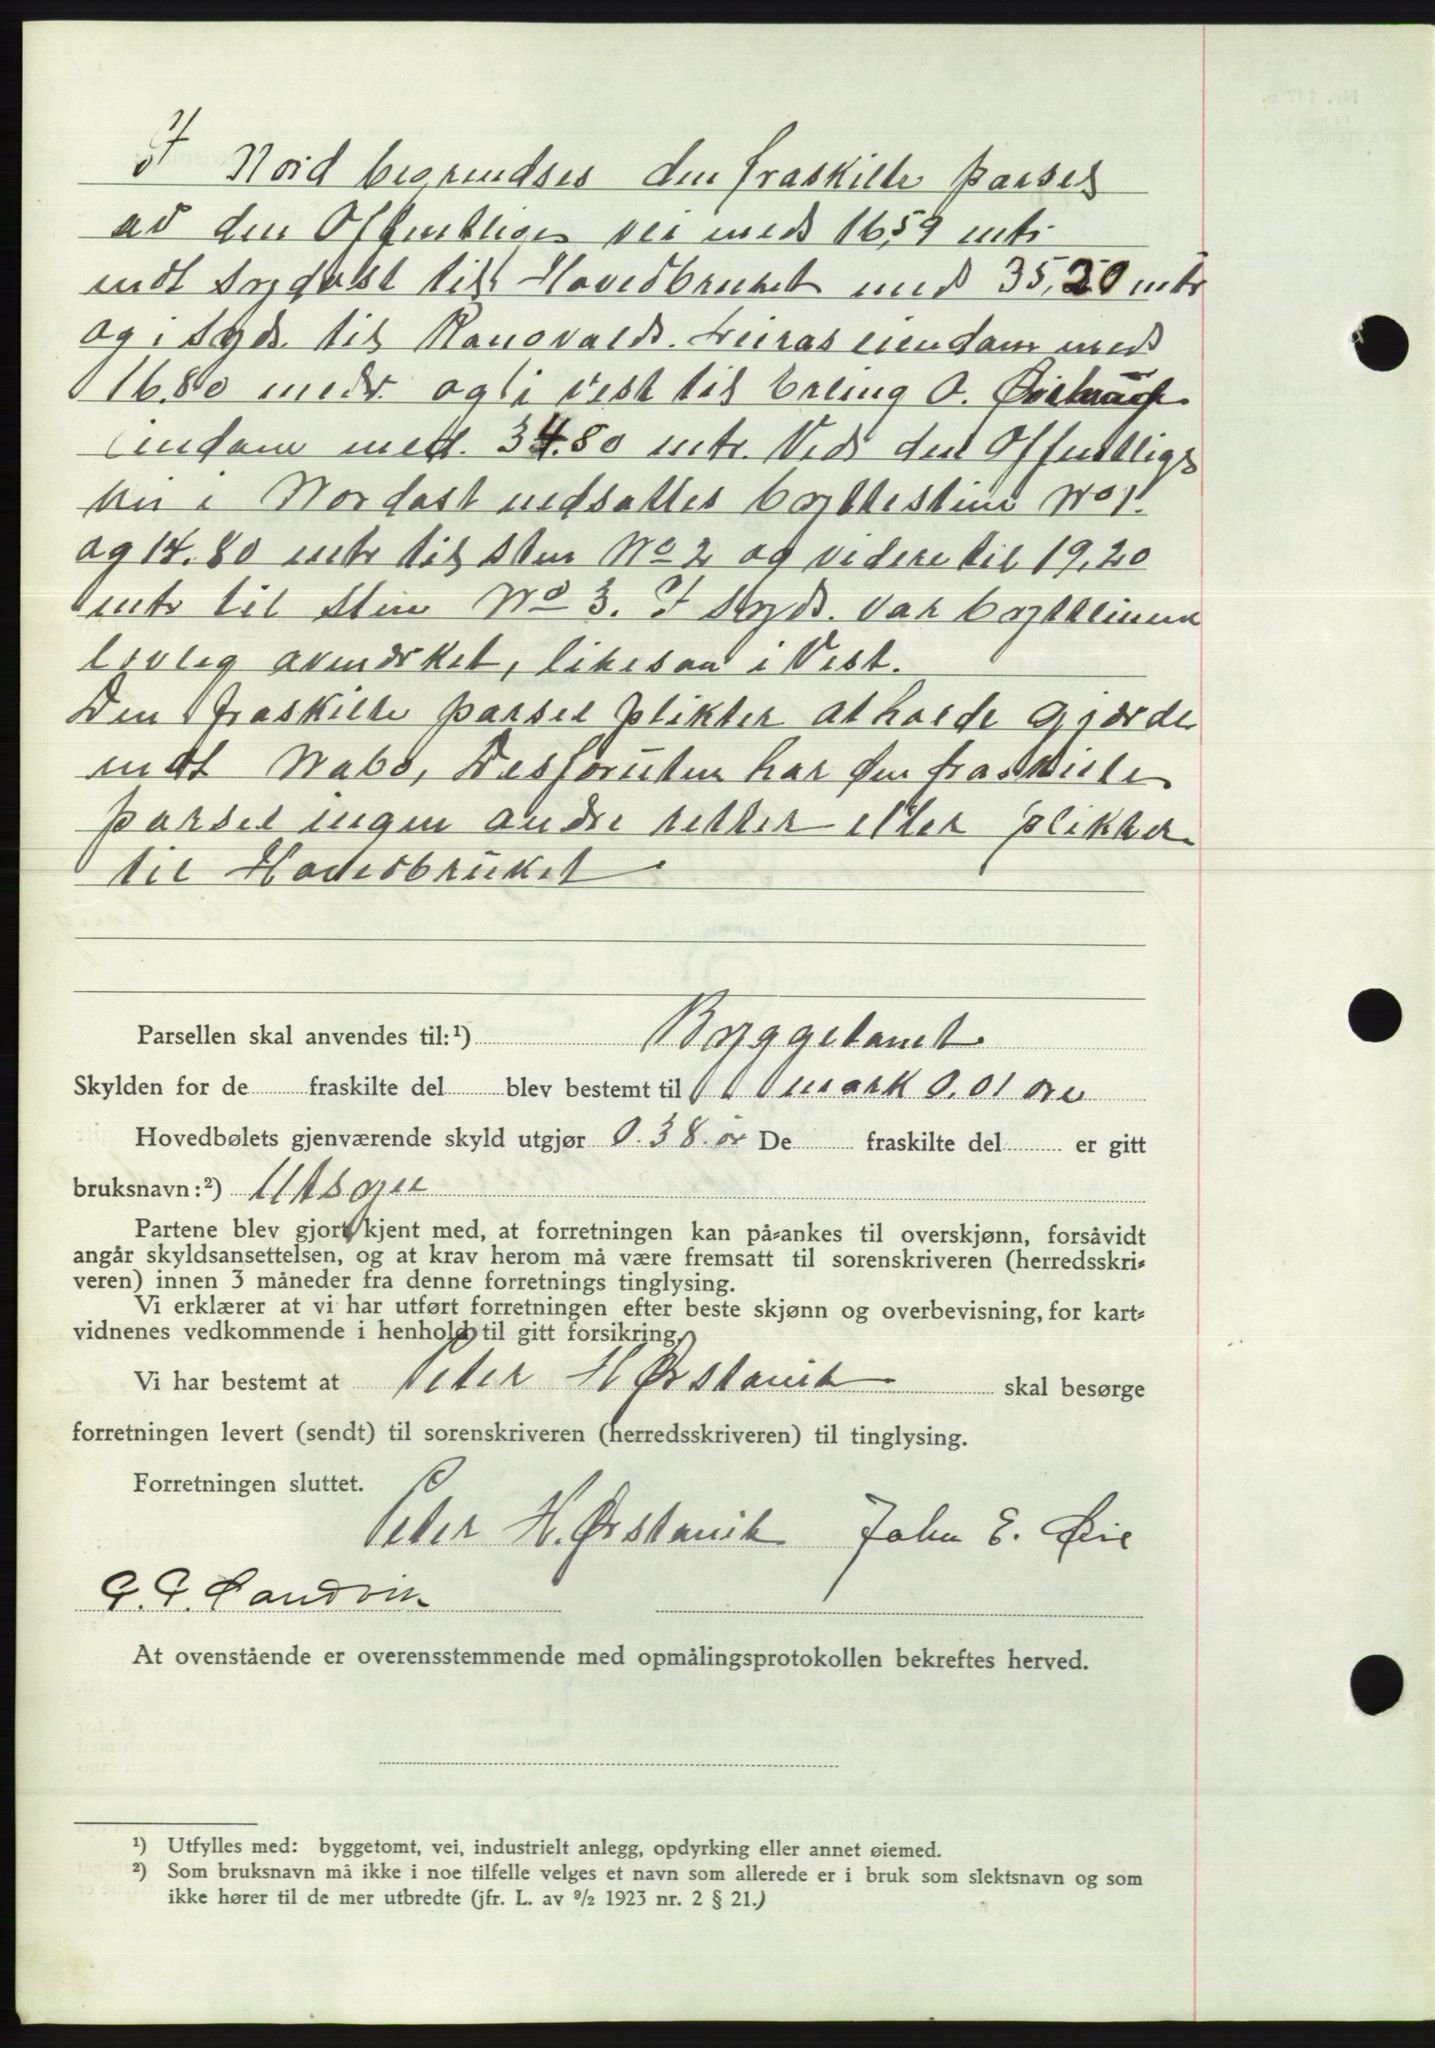 I Nord begrendses den fraskilte parsel
av den Offentlige vei med 16,59 mtr
mot sydøst til Hovedbruket med 35,20 mtr
og i Syd til Rangvald eiendom med
16.80 medr. og i vest til Erling O.
eiendom med. 34.80 mtr. Ved den Offentlige
vei i Nordøst nedsattes byttestine No 1.
og 14.80 mtr til sten No 2 og videre til 19,20
mtr til Sten No 3. I Syd. var byttelinien
lovlig avmerket, likesaa i Vest.
Den fraskilte parsel plikter at holde gjærde
mot Nabo, Desforuten har den fraskilte
parsel ingen andre retter eller plikter
til Hovedbruket
Parsellen skal anvendes til:¹) Byggetomt
Skylden for de fraskilte del blev bestemt til mark 0,01 øre
Hovedbølets gjenværende skyld utgjør 0.38 ør De fraskilte del er gitt
bruksnavn:²) Utsyn
Partene blev gjort kjent med, at forretningen kan på-ankes til overskjønn, forsåvidt
angår skyldsansettelsen, og at krav herom må være fremsatt til sorenskriveren (herredsskri-
veren) innen 3 måneder fra denne forretnings tinglysing.
Vi erklærer at vi har utført forretningen efter beste skjønn og overbevisning, for kart-
vidnenes vedkommende i henhold til gitt forsikring.
Vi har bestemt at Peter H Ørstavik skal besørge
forretningen levert (sendt) til sorenskriveren (herredsskriveren) til tinglysing.
Forretningen sluttet.
Peter H. Ørstavik John E. Øie
Sandvik
At ovenstående er overensstemmende med opmålingsprotokollen bekreftes herved.
¹) Utfylles med: byggetomt, vei, industrielt anlegg, opdyrking eller annet øiemed.
²) Som bruksnavn må ikke i noe tilfelle velges et navn som allerede er i bruk som slektsnavn og som
ikke hører til de mer utbredte (jfr. L. av ⁹/₂ 1923 nr. 2 § 21.)